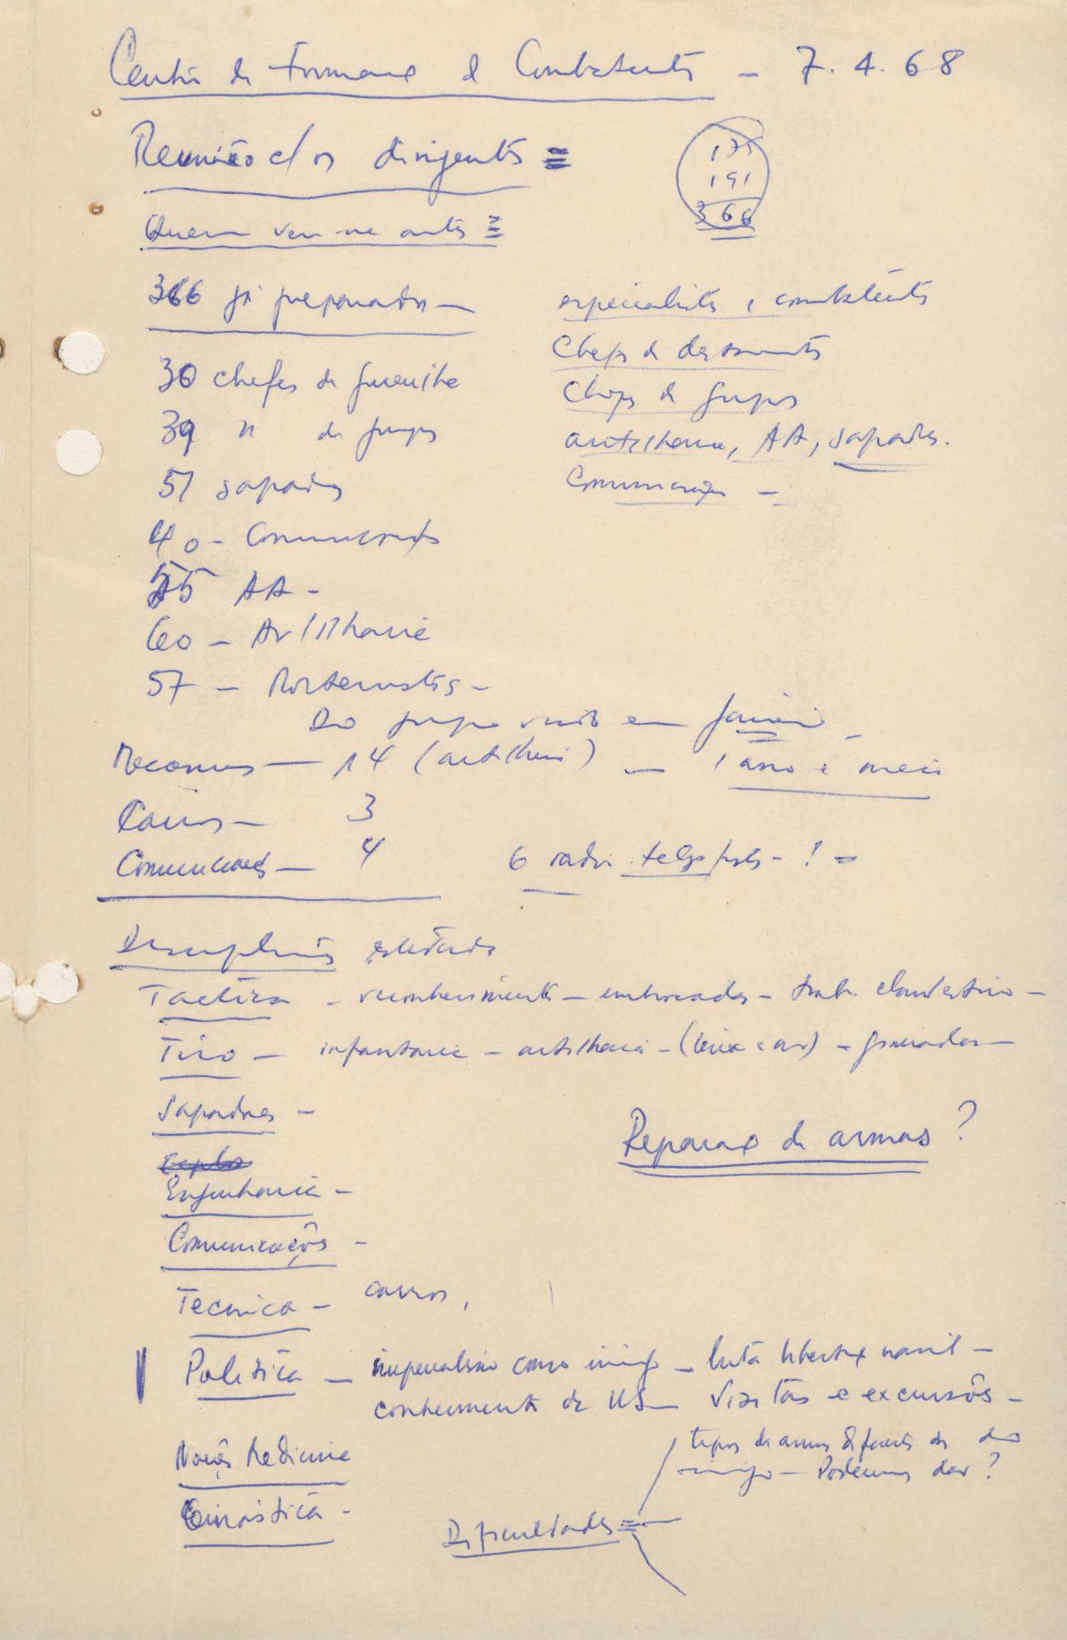 Centro de Formação de Combatentes - 7.4.68
Reunião c/ os dirigentes =
175
191
366
Quem vem antes =
366 já preparados -
especialistas, combatentes
Chefs de destacamentos
30 chefes de guerrilha
Chefs de grupos
39 " de grupos
artilharia, AA, sapadores.
51 sapadores
Comunicações -
40 - Comunicações
55 AA -
60 - Artilharia
57 - Morteiristas -
Do grupo vindo em Janeiro -
14 (artilharia) - 1 ano e meio
Carros - 3
Comunicações - 4
6 radio telegrafistas - ! -
Disciplinas estudadas
Tactica - reconhecimento - emboscadas - trab. clandestino -
Tiro - infantaria - artilharia - - granadas -
Sapadores -
Reparação de armas?
Engenharia -
Comunicações -
Tecnica - carros,
Politica - imperialismo como inimigo - luta libertação nacional -
conhecimento da US - Visitas e excursões -
tipos de armas diferentes das do
inimigo - Podemos dar?
Noções Medicina
Ginástica -
Dificuldades =